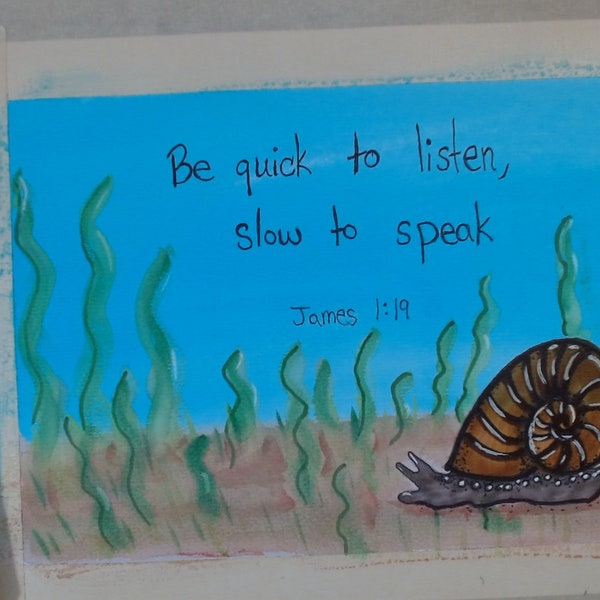 Be quick to listen,
slow to speak
James 1:19